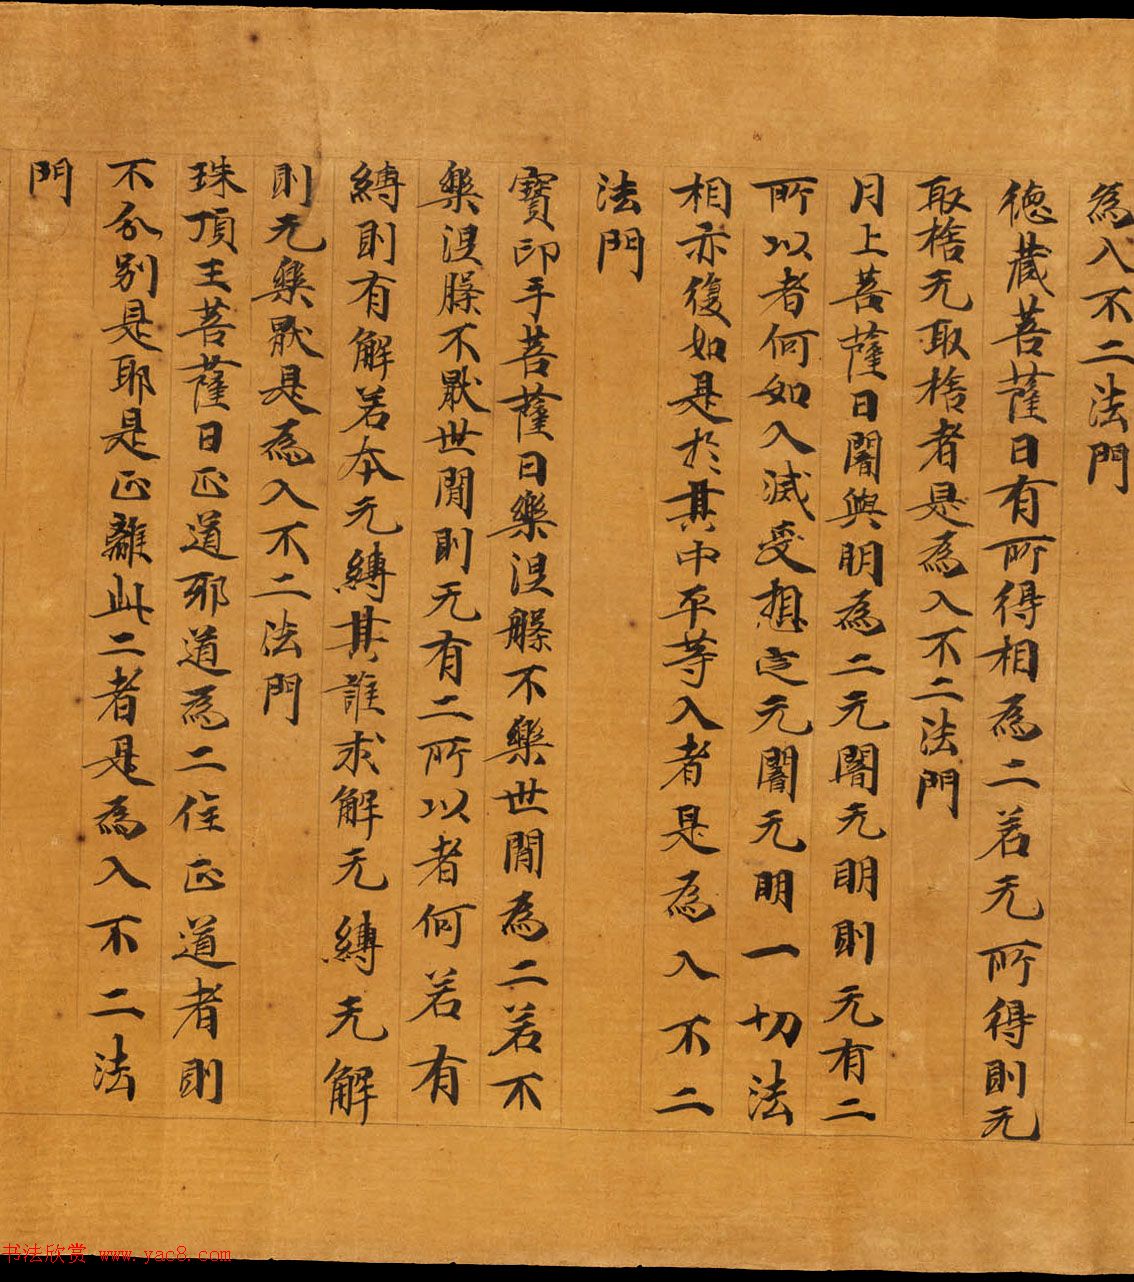 為入不二法門
德藏菩薩曰有所得相為二若无所得則无
取捨无取捨者是為入不二法門
月上菩薩曰闇與明為二无闇无明則无有二
所以者何如入滅受想定无闇无明一切法
相亦復如是於其中平等入者是為入不二
法門
寶印手菩薩曰樂涅槃不樂世間為二若不
樂涅槃不厭世間則无有二所以者何若有
縛則有解若本无縛其誰求解无縛无解
則无樂厭是為入不二法門
珠頂王菩薩曰正道邪道為二住正道者則
不分別是耶是正離此二者是為入不二法
門
书法欣赏 www.yac8.com